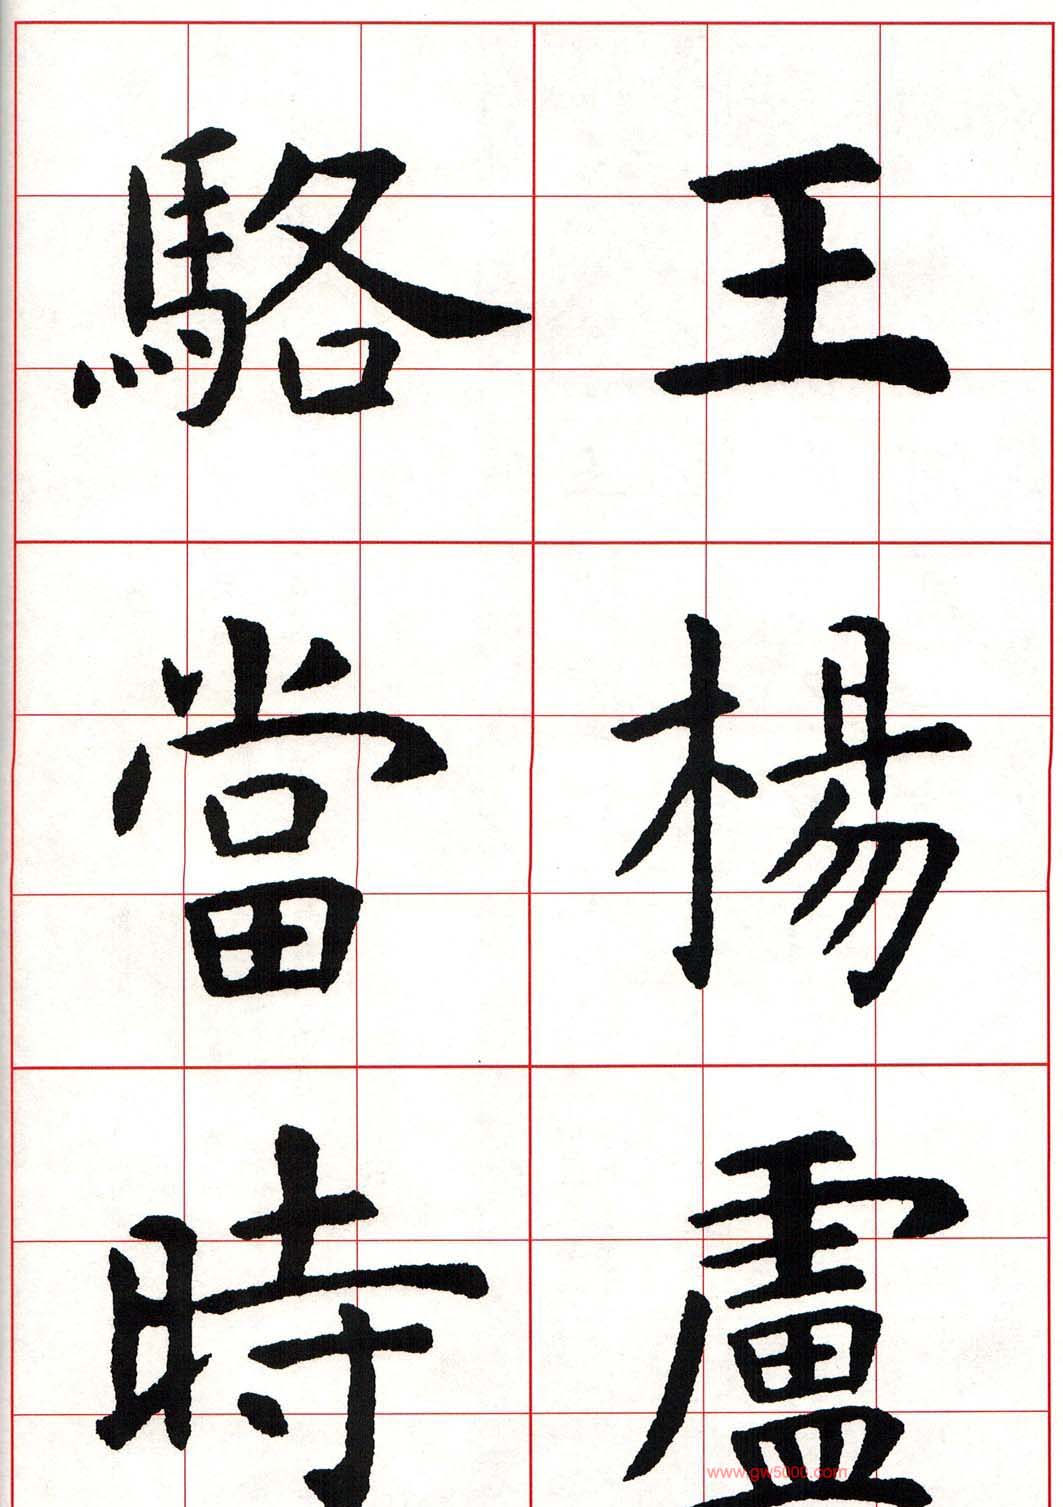 王楊盧
駱當時
www.gw5000.com